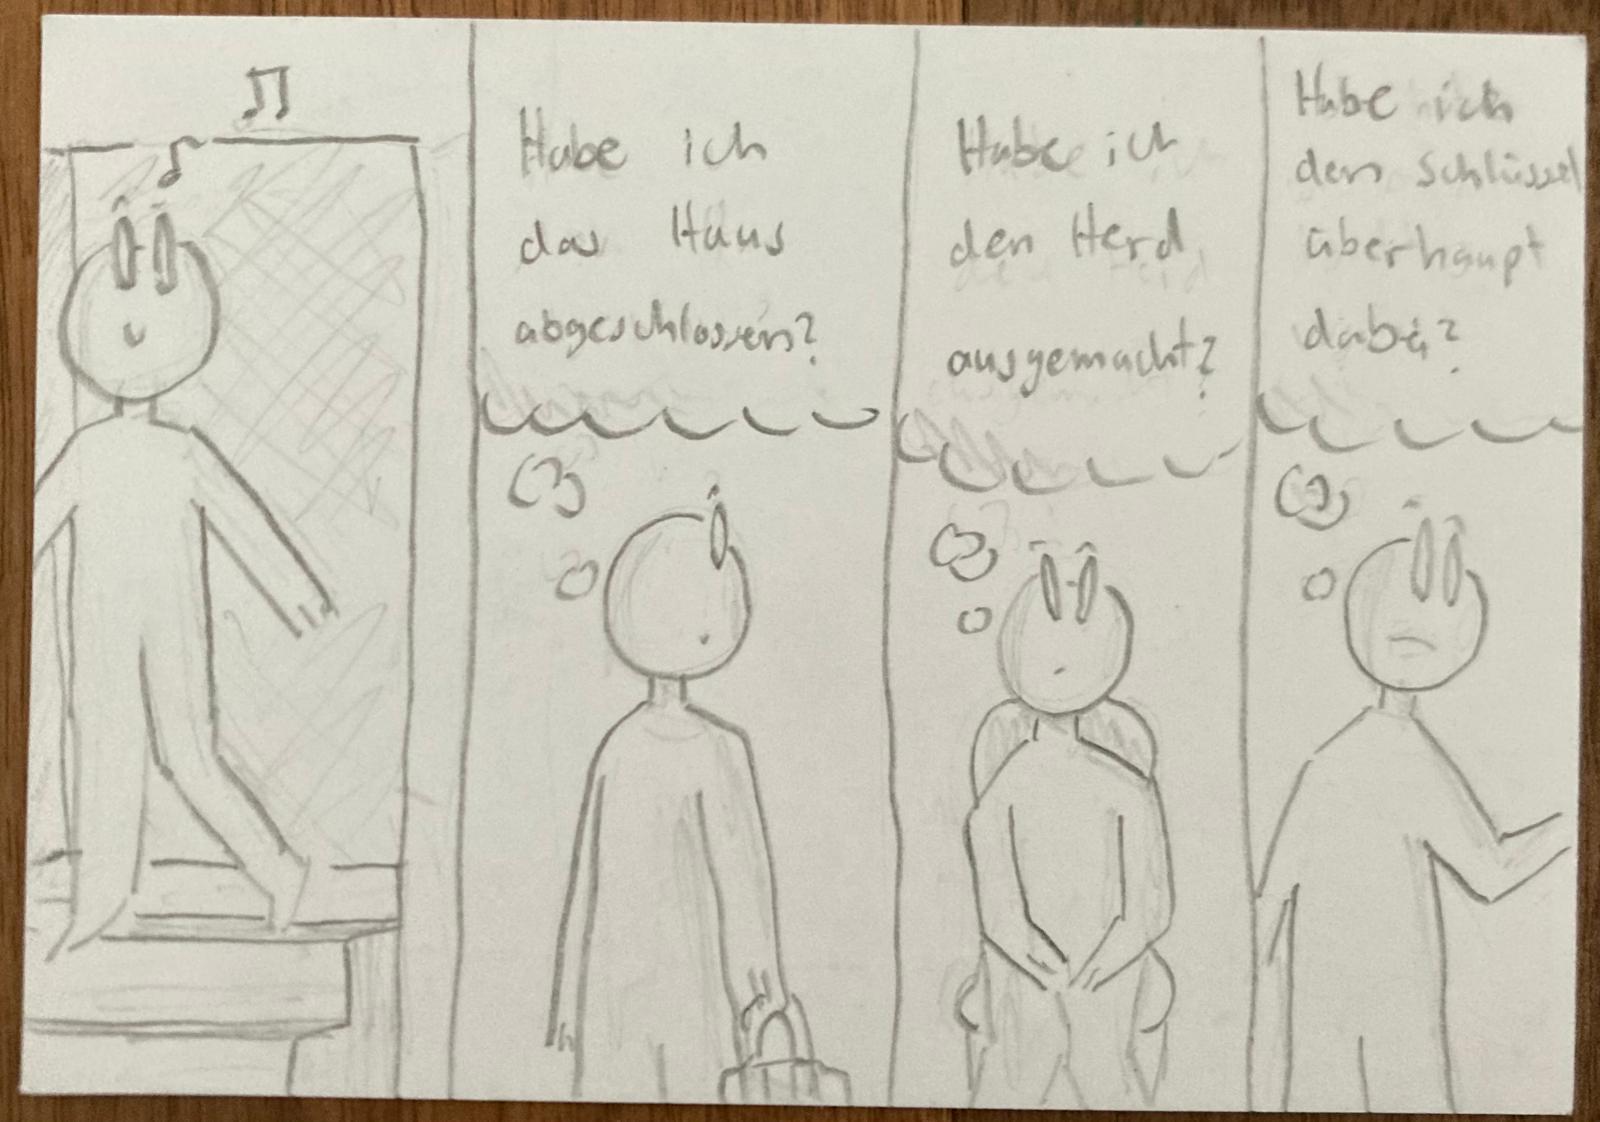 Habe ich
das Haus
abgeschlossen?
Habe ich
den Herd
ausgemacht?
Habe ich
den Schlüssel
überhaupt
dabei?